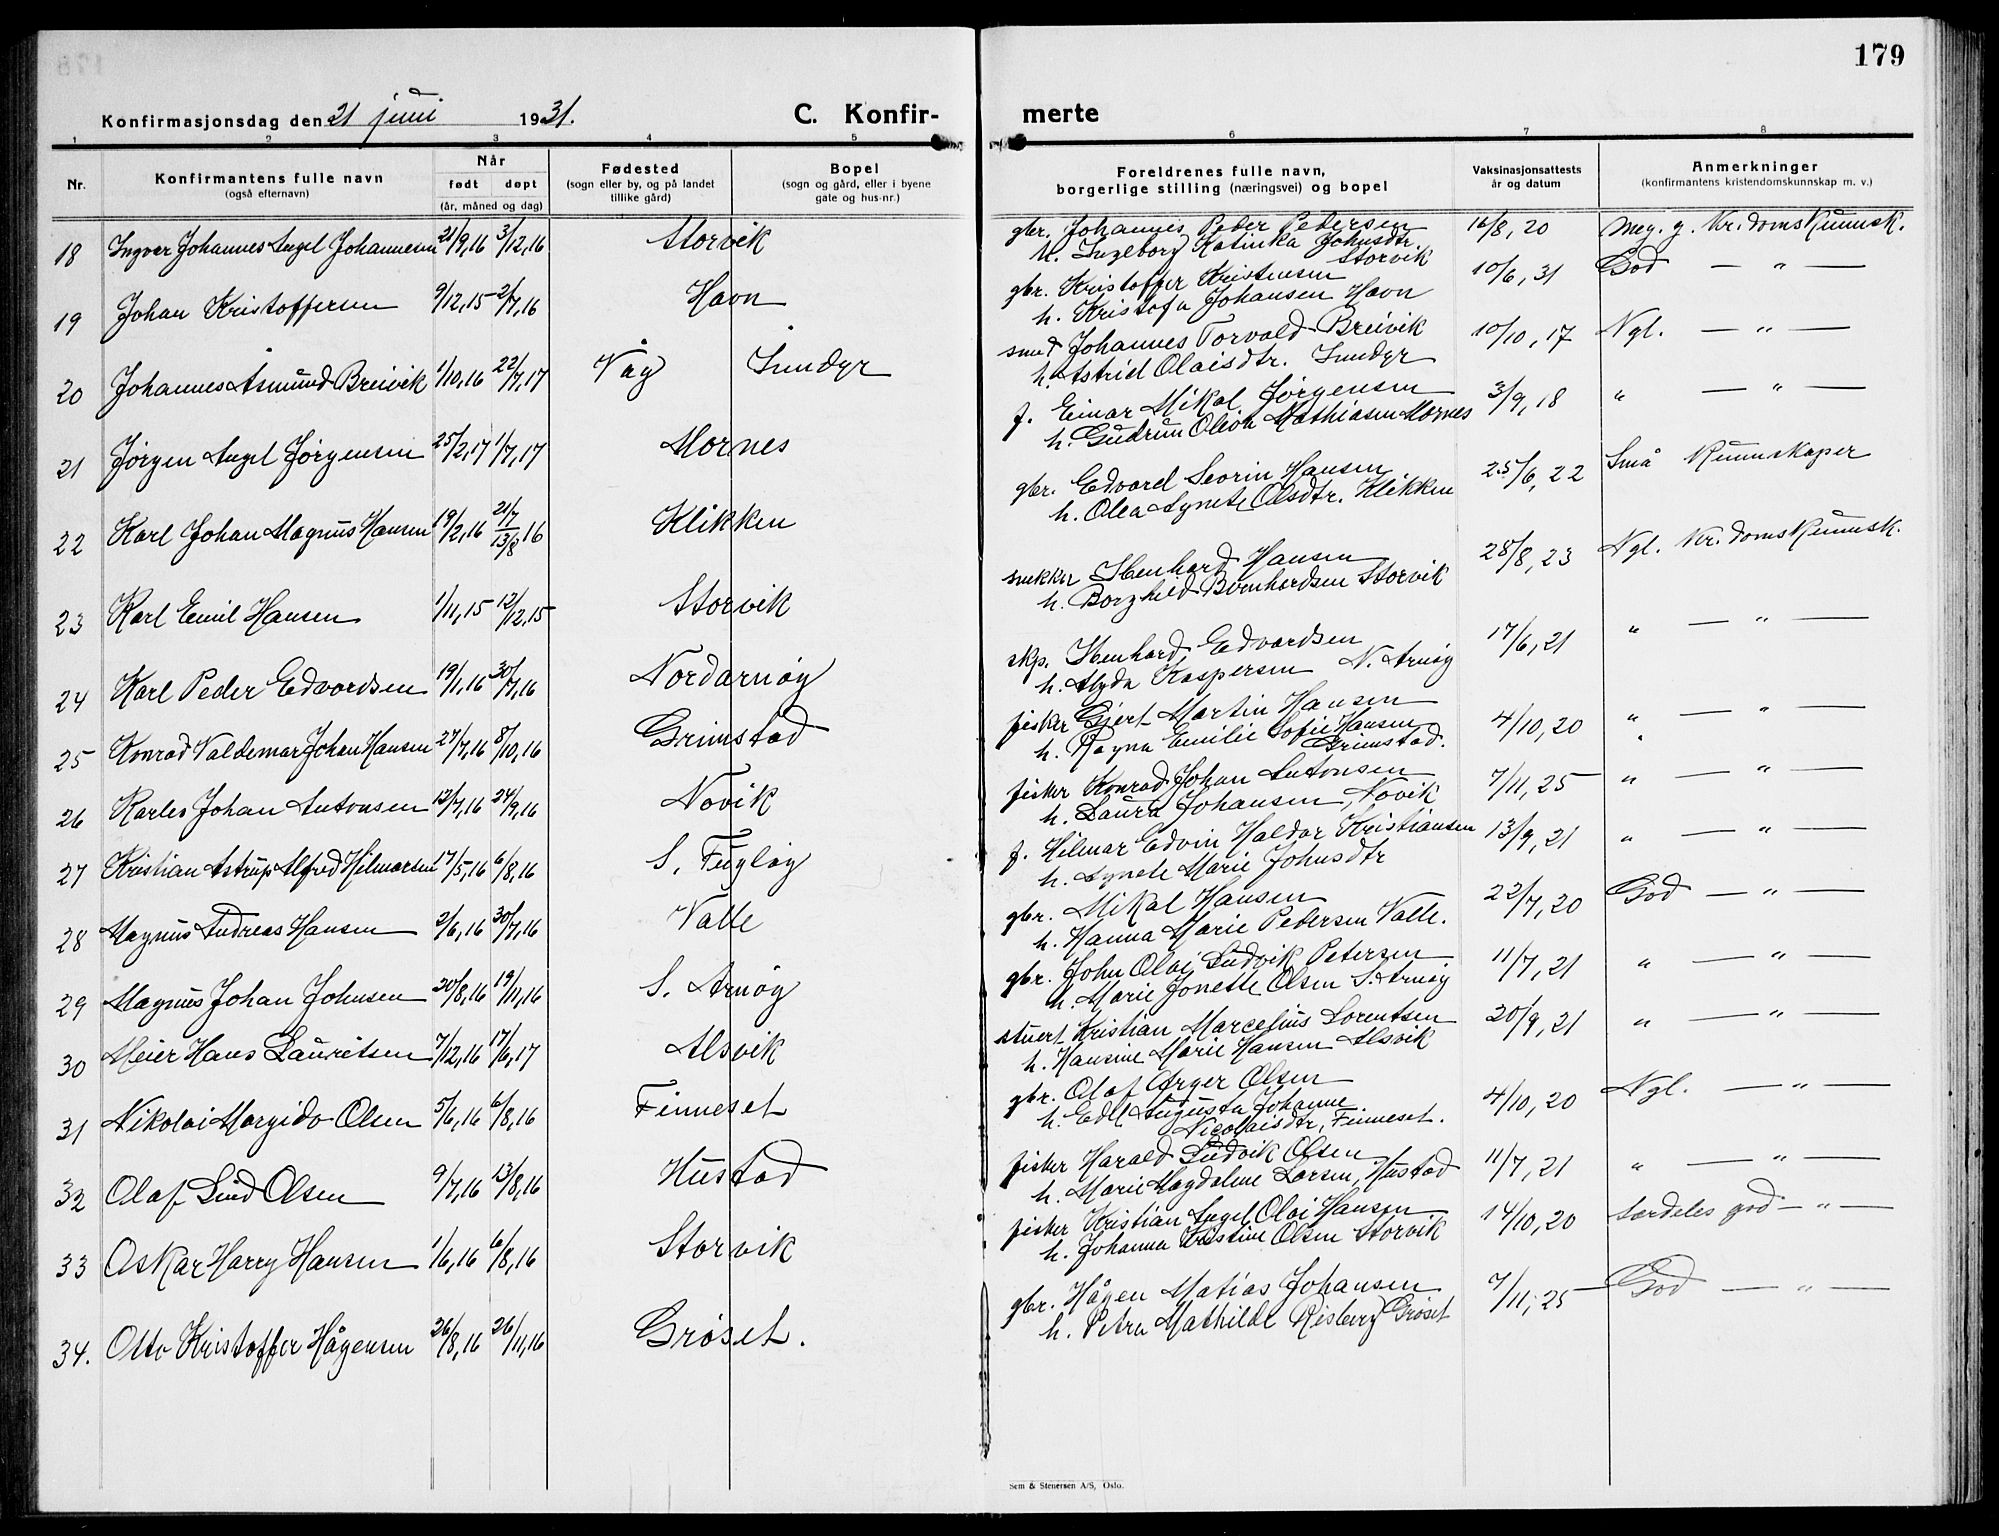 179
Konfirmasjonsdag den 21 juni 1931.
C. Konfir-
merte
1 2 3 4 5 6 7 8
Nr.
Konfirmantens fulle navn
(også efternavn)
Når
født døpt
(år, måned og dag)
Fødested
(sogn eller by, og på landet
tillike gård)
Bopel
(sogn og gård, eller i byene
gate og hus-nr.)
Foreldrenes fulle navn,
borgerlige stilling (næringsvei) og bopel
Vaksinasjonsattests
år og datum
Anmerkninger
(konfirmantens kristendomskunnskap m. v.)
18 Ingvar Johannes Angel Johannesen 21/9,16 3/12,16 Storvik
gbr. Johannes Peder Pedersen 16/8, 20 Meg. g. Kr.domskunnsk.
h. Ingeborg Katinka Johnsdtr.
Storvik
19 Johan Kristoffersen 9/12,15 2/7,16 Havn
gbr. Kristoffer Kristensen 10/6, 31 God — " —
h. Kristofa Johansen Havn
20 Johannes Asmund Breivik 1/10,16 22/7,17 Våg Sundyr
smed Johannes Torvald Breivik 10/10, 17 Ngl. — " —
h. Astrid Olaisdtr. Sundyr
21 Jørgen Angel Jørgensen 25/2,17 1/7,17 Mornes
f. Einar Mikal Jørgensen 3/9, 18 " — " —
h. Gudrun Oleva Mathiasen Mornes
22 Karl Johan Magnus Hansen 19/2,16 21/7 13/8,16 Klikken
gbr. Edvard Seorin Hansen 25/6, 22 Små Kunnskaper
h. Olea Agnete Olsdtr. Klikken
23 Karl Emil Hansen 1/11,15 12/12,15 Storvik
snekker Ibenhard Hansen 28/8, 23 Ngl. Kr.domskunnsk.
h. Borghild Bernhardsen Storvik
24 Karl Peder Edvardsen 19/1,16 30/7,16 Nordarnøy
skp. Ibenhard Edvardsen 17/6, 21 " — " —
h. Alyda Kaspersen N. Arnøy
25 Konrad Valdemar Johan Hansen 27/7,16 8/10,16 Grimstad
fisker Gjert Martin Hansen 4/10, 20 " — " —
h. Ragna Emilie Sofie Hansen
Grimstad.
26 Karles Johan Antonsen 12/7,16 24/9,16 Novik
fisker Konrad Johan Antonsen 7/11, 25 " — " —
h. Laura Johansen, Novik
27 Kristian Astrup Alfred Hilmarsen 17/5,16 6/8,16 S. Fugløy
f. Hilmar Edvin Haldor Kristiansen 13/9, 21 " — " —
h. Agnete Marie Johnsdtr
28 Magnus Andreas Hansen 2/6,16 30/7,16 Valle
gbr. Mikal Hansen 22/7, 20 God — " —
h. Hanna Marie Pedersen Valle.
29 Magnus Johan Johnsen 20/8,16 19/11,16 S. Arnøy
gbr. John Olai Ludvik Petersen 11/7, 21 " — " —
h. Marie Jonette Olsen S. Arnøy
30 Meier Hans Lauritsen 7/12,16 17/6,17 Alsvik
stuert Kristian Marcelius Lorentsen 20/9, 21 " — " —
h. Hansine Marie Hansen Alsvik
31 Nikolai Margido Olsen 5/6,16 6/8,16 Finneset
gbr. Olaf Ørger Olsen 4/10, 20 Ngl. — " —
h. Edel Augusta Johanne
Nicolaisdtr, Finneset.
32 Olaf Lind Olsen 9/7,16 13/8,16 Hustad
fisker Harald Ludvik Olsen 11/7, 21 " — " —
h. Marie Magdalene Larsen, Hustad
33 Oskar Harry Hansen 1/6,16 6/8,16 Storvik
fisker Kristian Angel Olai Hansen 14/10, 20 særdeles god — " —
h. Johanna Kristine Olsen Storvik
34. Otto Kristoffer Hågensen 26/8,16 26/11,16 Grøset.
gbr. Hågen Matias Johansen 7/11, 25 God — " —
h. Petra Mathilde Risberg Grøset
Sem & Stenersen A/S, Oslo.